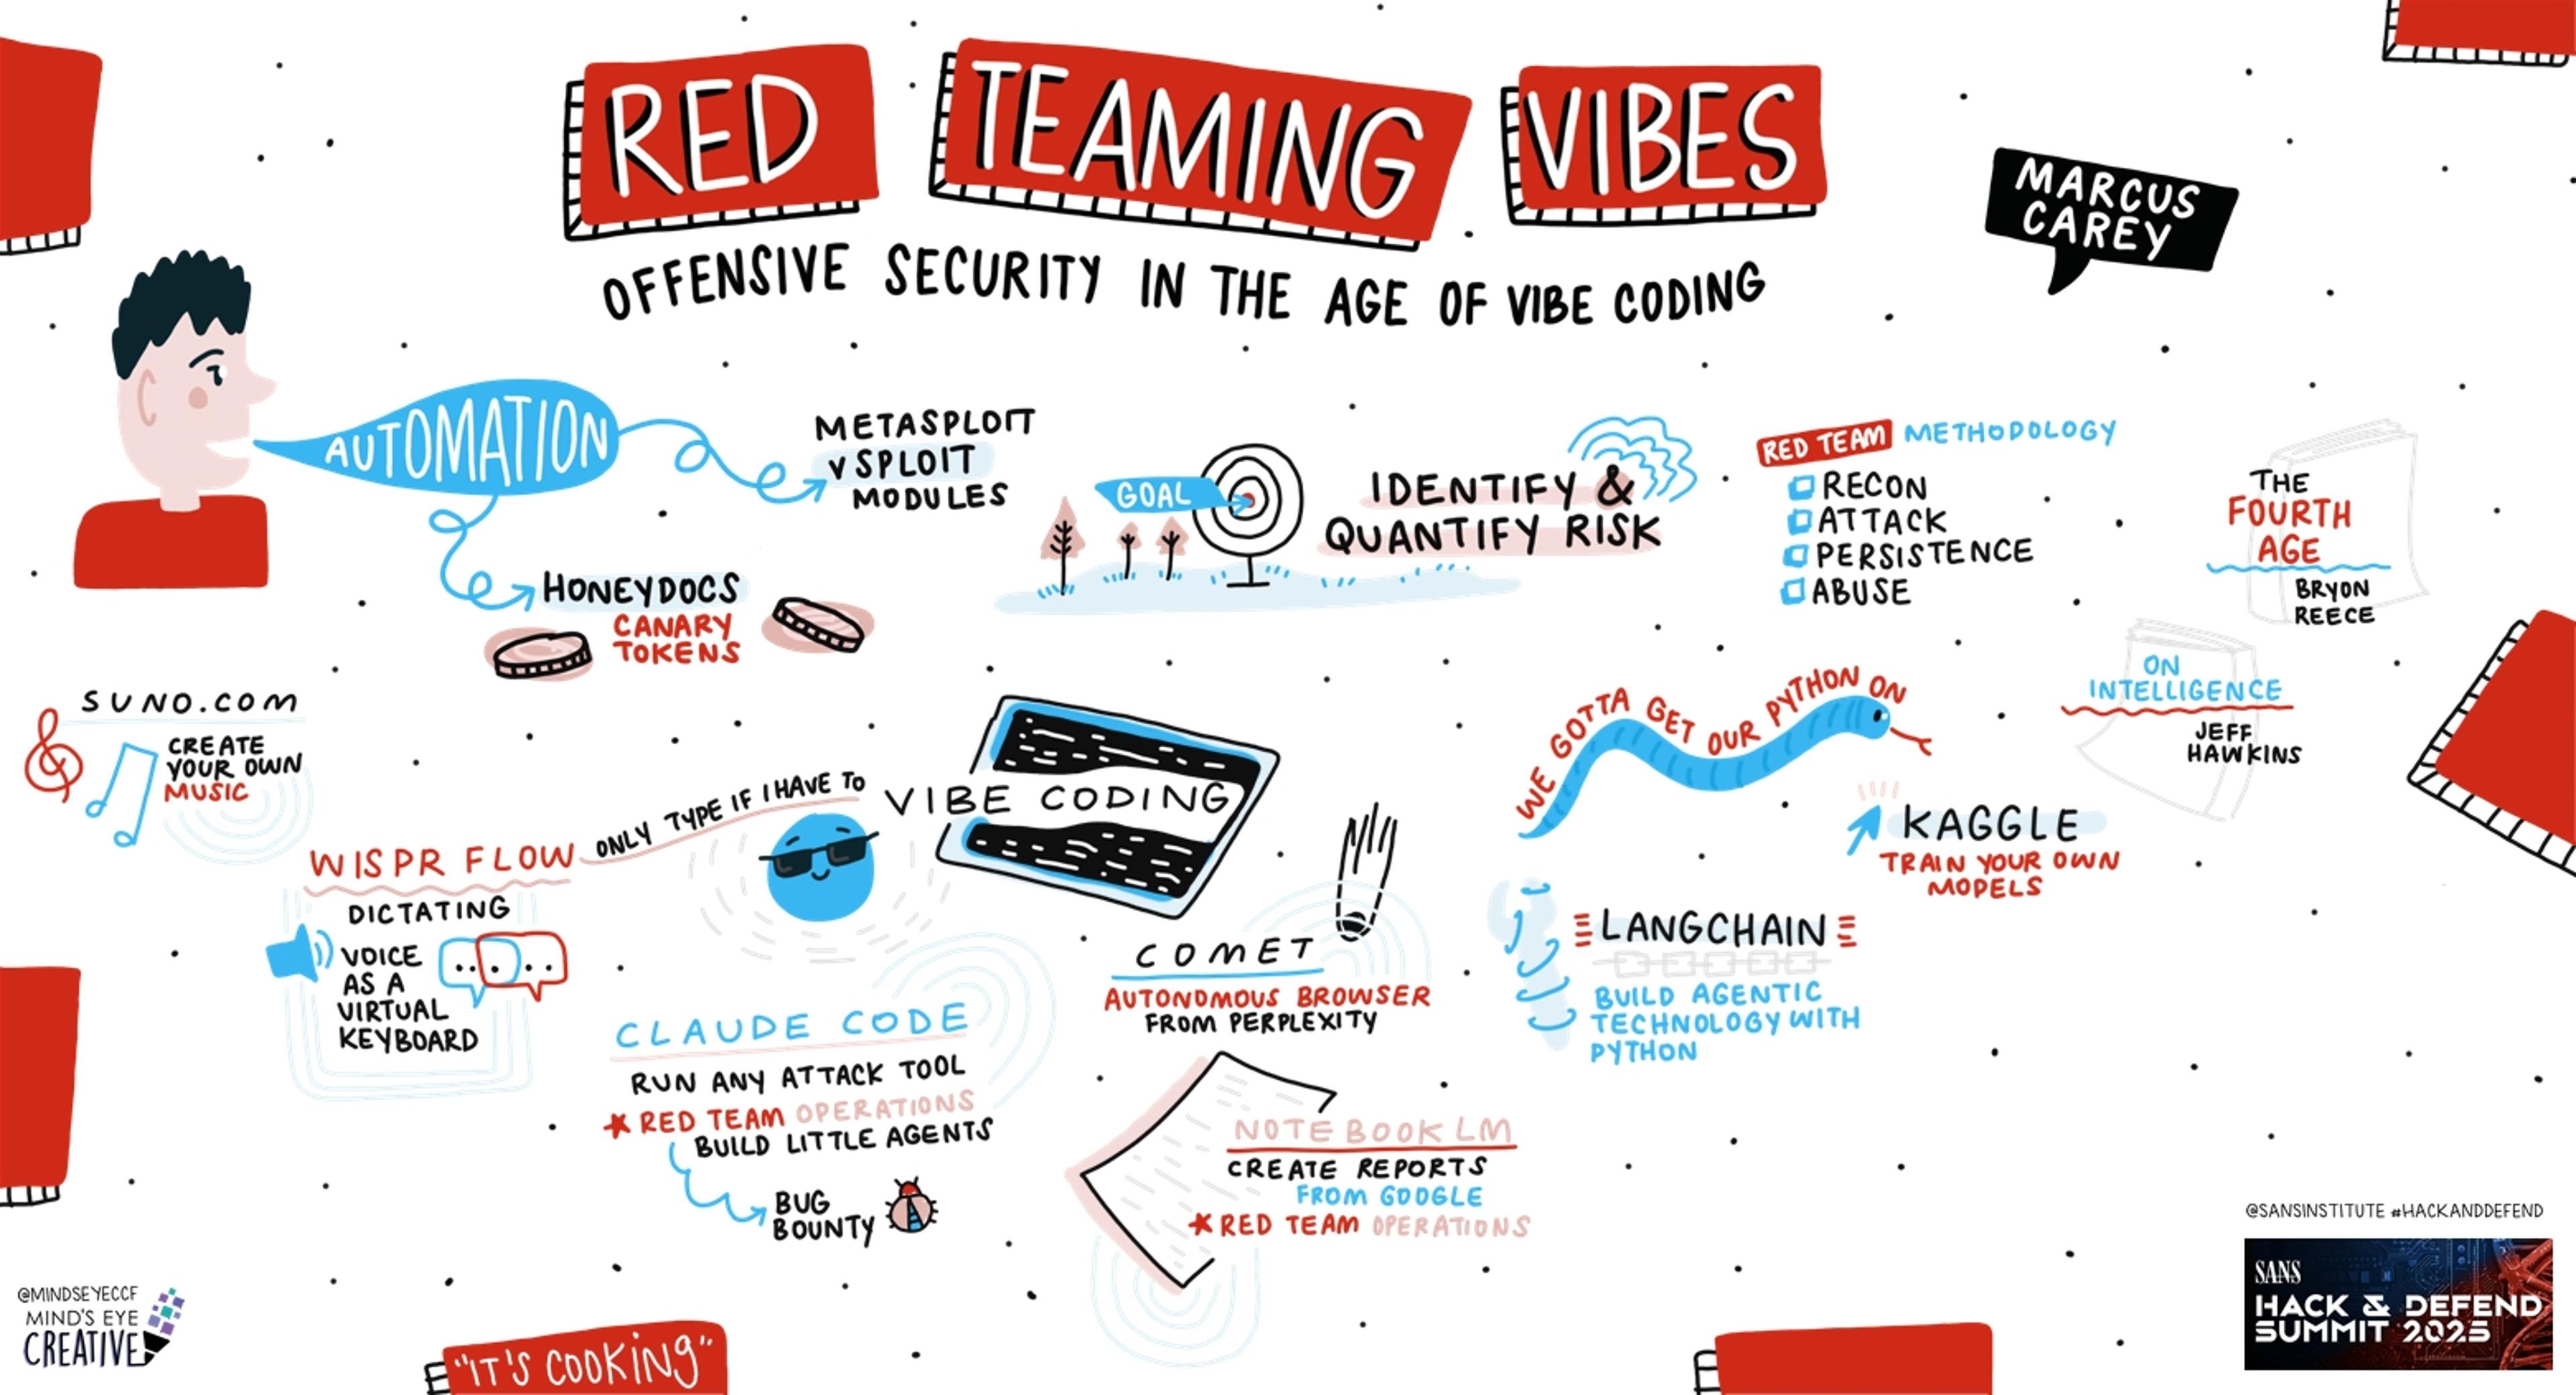 RED TEAMING VIBES
OFFENSIVE SECURITY IN THE AGE OF VIBE CODING
MARCUS
CAREY
AUTOMATION
METASPLOIT
VSPLOIT
MODULES
HONEYDOCS
CANARY
TOKENS
GOAL
IDENTIFY &
QUANTIFY RISK
RED TEAM METHODOLOGY
RECON
ATTACK
PERSISTENCE
ABUSE
THE
FOURTH
AGE
BRYON
REECE
ON
INTELLIGENCE
JEFF
HAWKINS
SUNO.COM
CREATE
YOUR OWN
MUSIC
WISPR FLOW
DICTATING
VOICE
AS A
VIRTUAL
KEYBOARD
ONLY TYPE IF I HAVE TO
VIBE CODING
CLAUDE CODE
RUN ANY ATTACK TOOL
RED TEAM OPERATIONS
BUILD LITTLE AGENTS
BUG
BOUNTY
COMET
AUTONOMOUS BROWSER
FROM PERPLEXITY
NOTEBOOK LM
CREATE REPORTS
FROM GOOGLE
RED TEAM OPERATIONS
WE GOTTA GET OUR PYTHON ON
KAGGLE
TRAIN YOUR OWN
MODELS
LANGCHAIN
BUILD AGENTIC
TECHNOLOGY WITH
PYTHON
@MINDSEYECCF
MIND'S EYE
CREATIVE
"IT'S COOKING"
@SANSINSTITUTE #HACKANDDEFEND
SANS
HACK & DEFEND
SUMMIT 2025